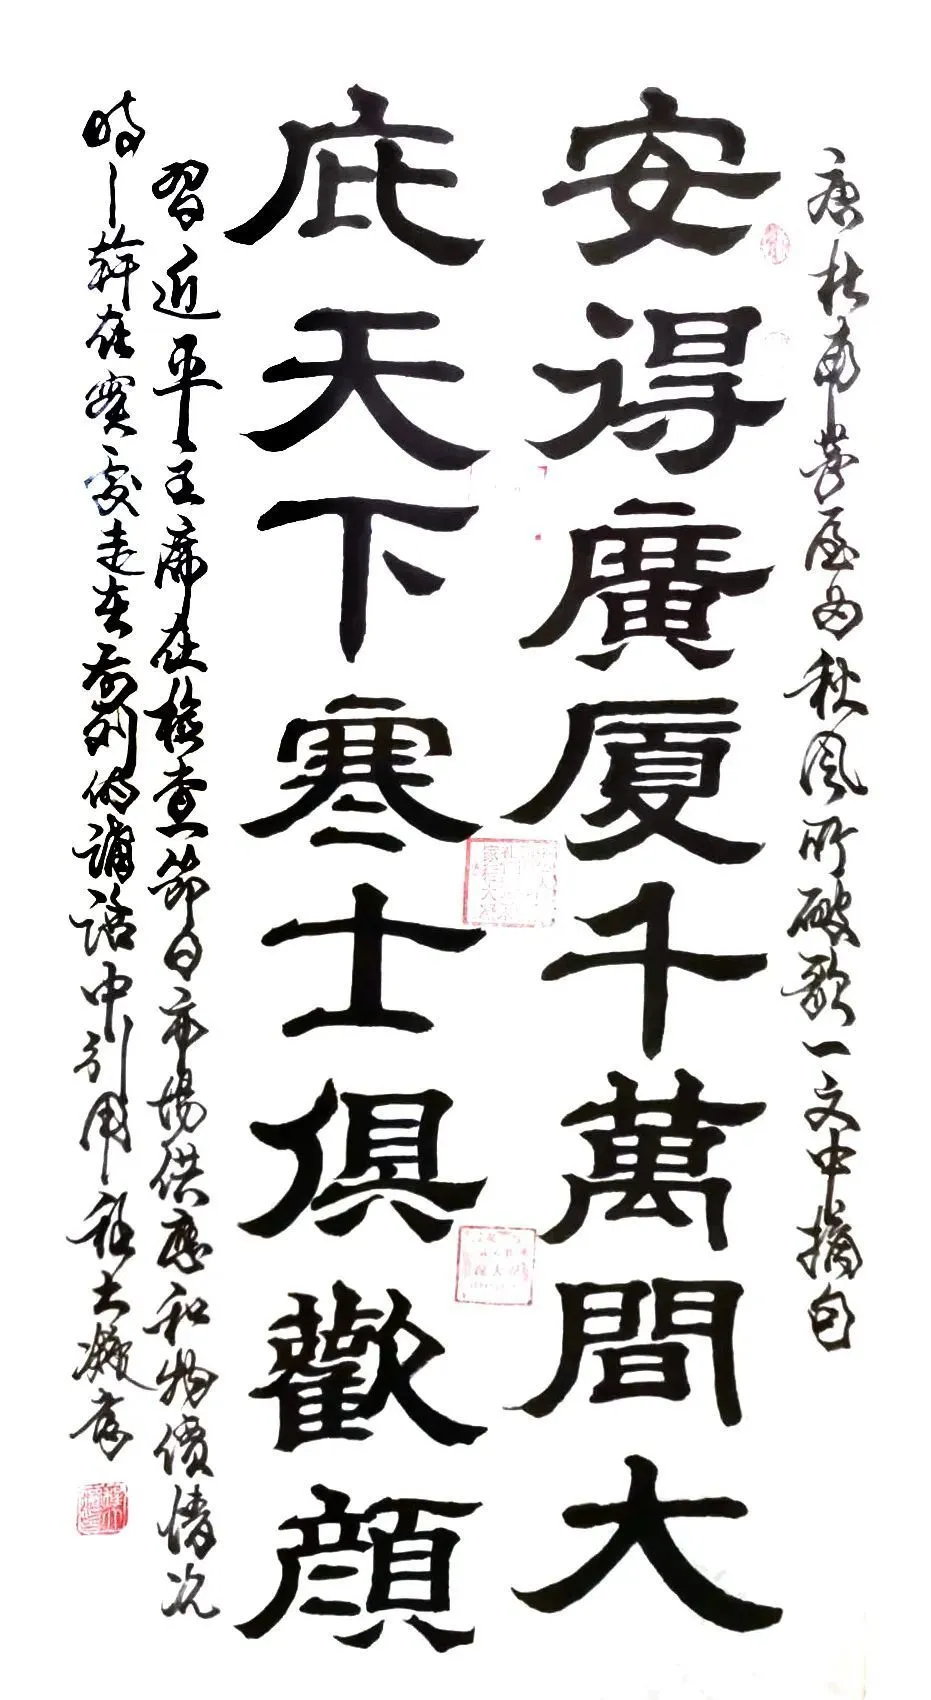 唐杜甫茅屋为秋风所破歌一文中摘句
安得廣厦千萬間大
庇天下寒士俱歡顔
習近平主席在檢查節日市場供應和物價情况
時幹在實處走在前列的講話中引用 程大書